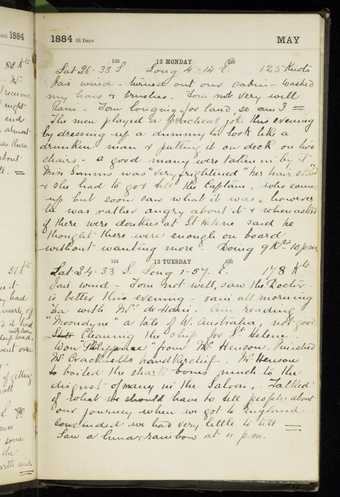 1884
1884 31 Days
MAY
12 MONDAY
Lat 26·33 S. Long 4·14 E. 125 Knots
Fair wind - turned out our cabin - washed
my hair & brushes. Tom not very well.
Rain - Tom longing for land, so am I =
The men played a practical joke this evening
by dressing up a dummy to look like a
drunken man & putting it on deck on two
chairs - a good many were taken in by it -
Miss Simms was "very frightened" her hair
& she had to get the Captain, who came
up but soon saw what it was, however
he was rather angry about it & when asked
if there were donkeys at St Helena said he
thought there were enough on board
without wanting more. Going 9 Kts 10 p.m.
13 TUESDAY
Lat 24·33 S. Long 1·57. E. 178 Kts
Fair wind - Tom not well, saw the Doctor
is better this evening - rain all morning
tea with Mrs am reading
"Moondyne" a tale of W. Australia, not good
Cleaning the ship for St Helena.
Won "Philippine" from Mr Henson, finished
Mr handkerchief, Mr Henson
boiled the shark bones much to the
disgust of many in the Saloon. Talked
of what we should have to tell people about
our journey when we got to England
concluded we had very little to tell =
Saw a lunar rainbow at 11 p.m.